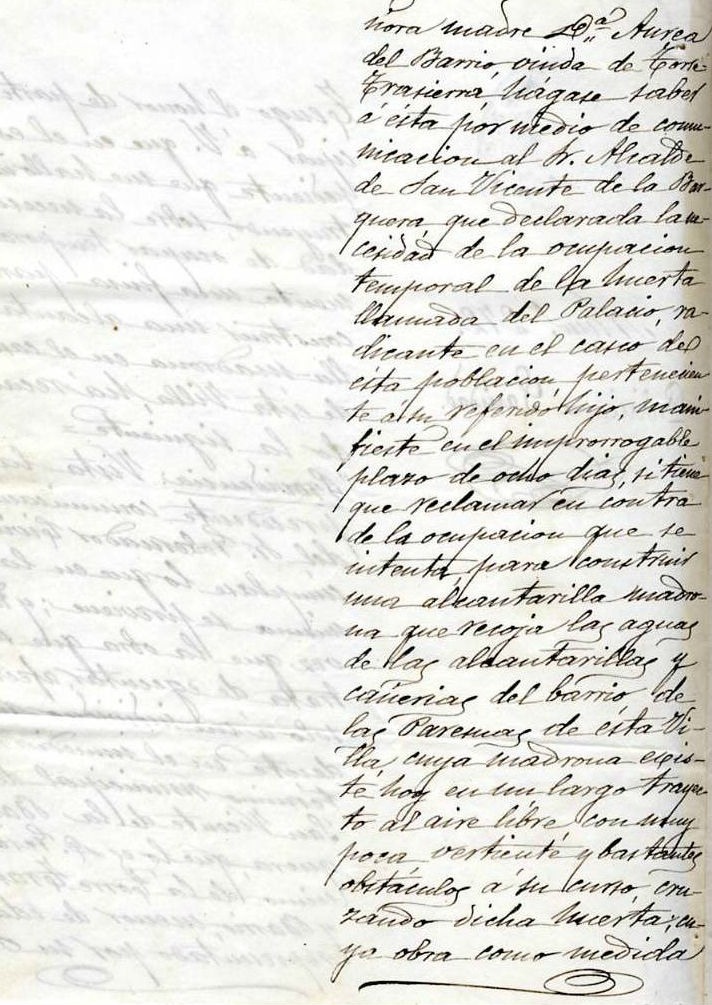 ñora madre D.ª Aurea
del Barrio, viuda de Torre-
Trasierra, hágase saber
á ésta por medio de comu-
nicacion al Sr. Alcalde
de San Vicente de la Bar-
quera, que declarada la ne-
cesidad de la ocupacion
temporal de la huerta
llamada del Palacio, ra-
dicante en el casco de
ésta poblacion pertenecien
te á su referido hijo, mani
fieste en el improrrogable
plazo de ocho dias, si tiene
que reclamar en contra
de la ocupacion que se
intenta, para construir
una alcantarilla madro-
na que recoja las aguas
de las alcantarillas y
cañerias del barrio de
las de ésta Vi-
lla, cuya madrona exis-
te hoy en un largo trayec-
to al aire libre con muy
poca vertiente y bastantes
obstáculos á su curso, cru-
zando dicha huerta, cu-
ya obra como medida